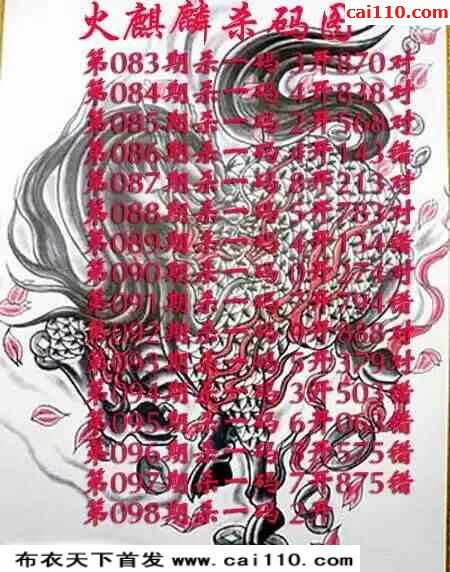 cai110.com
火麒麟杀码图
第083期杀一码 3开870对
第084期杀一码 4开838对
第085期杀一码 2开568对
第086期杀一码 4开143错
第087期杀一码 8开213对
第088期杀一码 5开783对
第089期杀一码 4开134错
第090期杀一码 0开374对
第091期杀一码 7开794错
第092期杀一码 开888对
第093期杀一码 5开379对
第094期杀一码 3开503错
第095期杀一码 6开 错
第096期杀一码 开575错
第097期杀一码 7开875错
第098期杀一码 2开
布衣天下首发 www.cai110.com